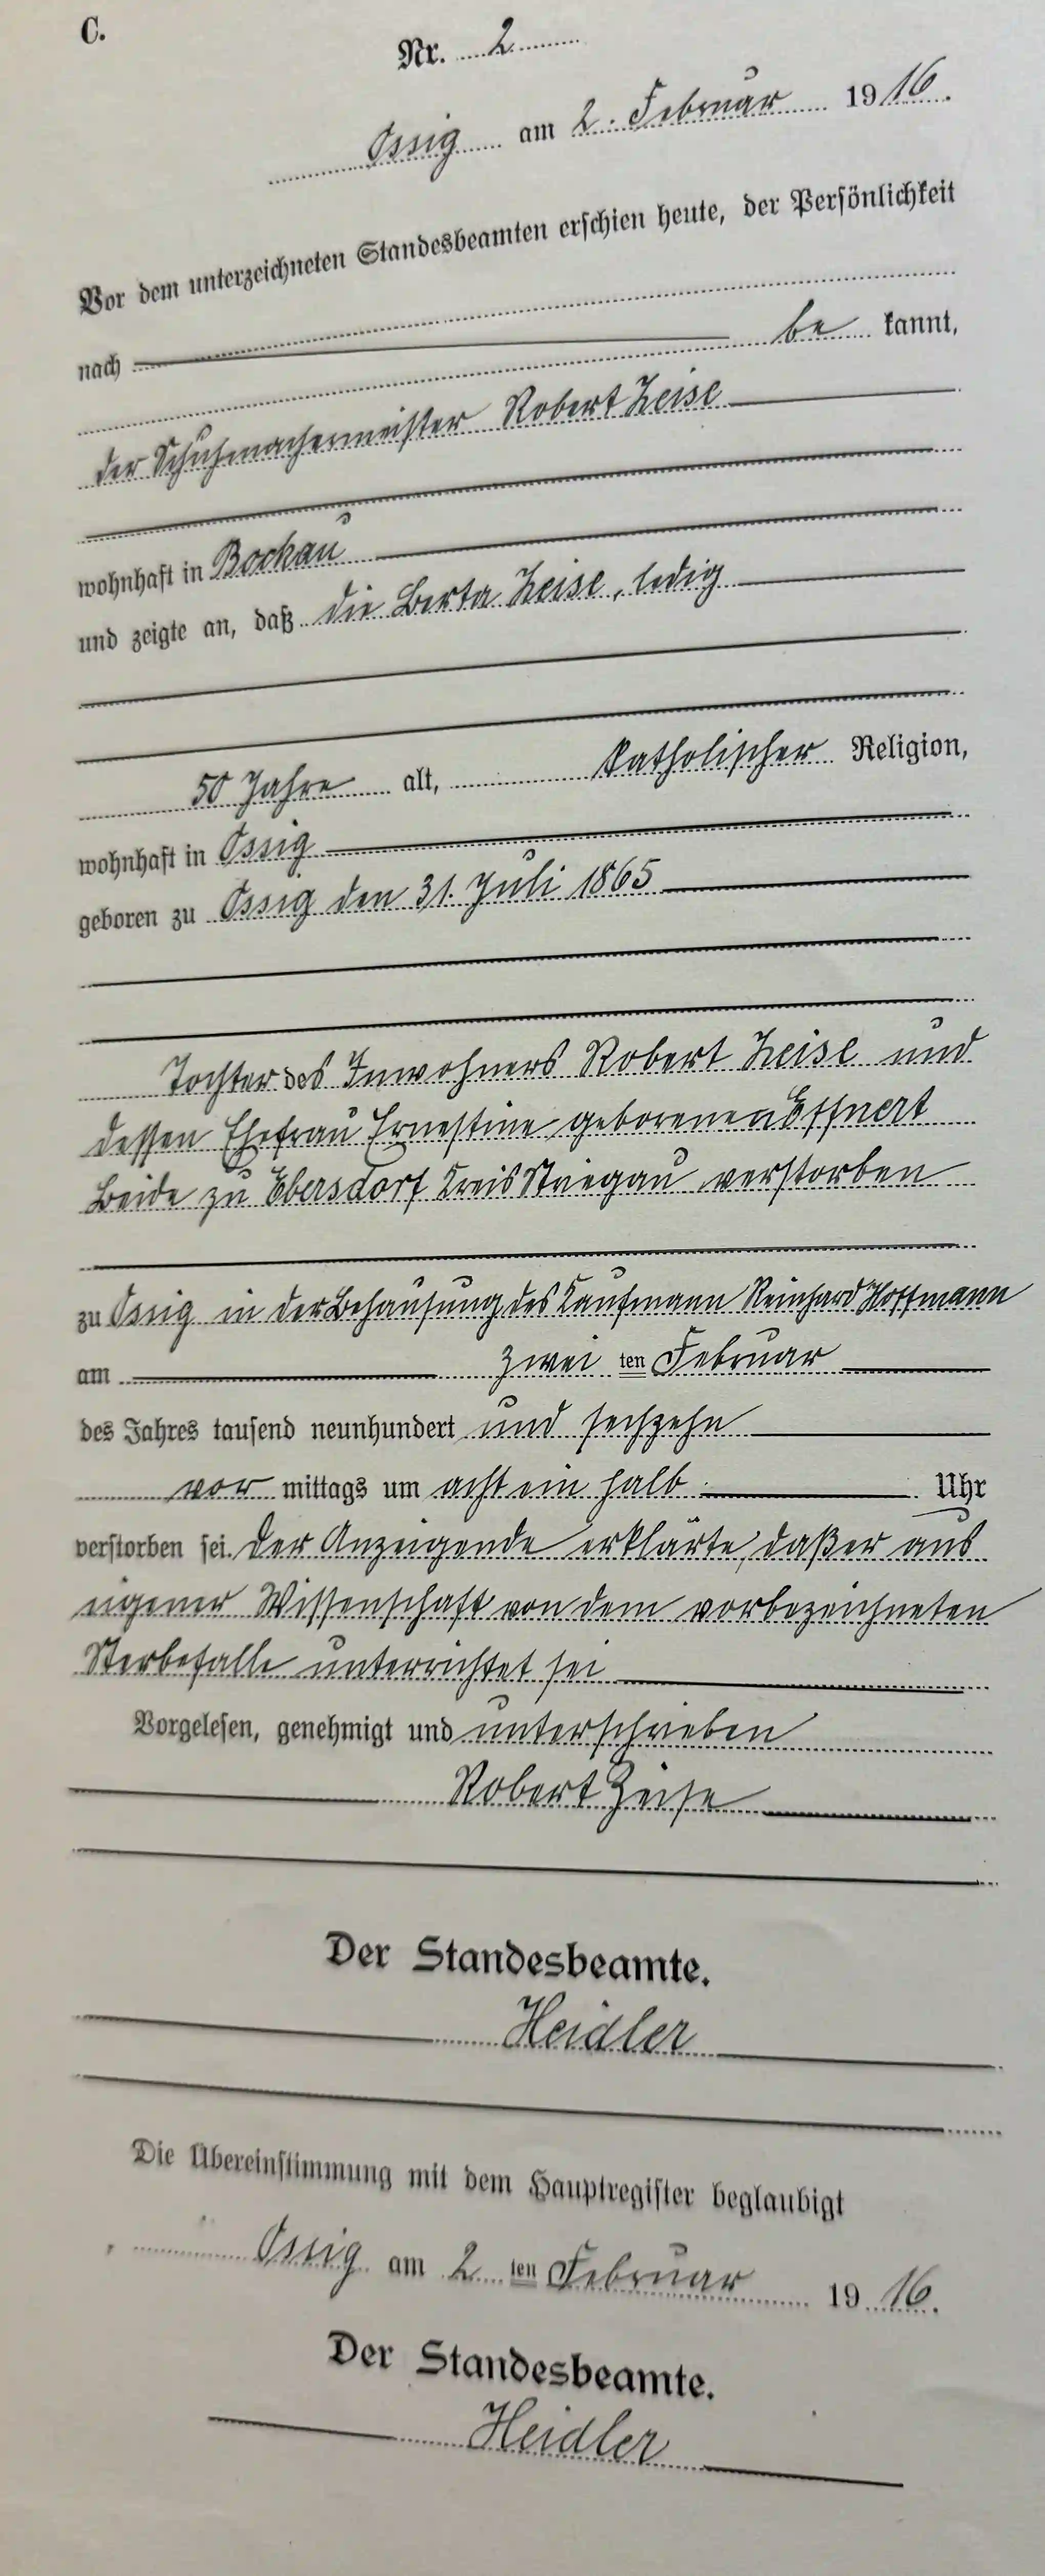 C.
Nr. 2
Ossig am 2. Februar 1916.
Vor dem unterzeichneten Standesbeamten erschien heute, der Persönlichkeit
nach
be kannt,
der Schuhmachermeister Robert Zeise
wohnhaft in Bockau
und zeigte an, daß die Berta Zeise, ledig
50 Jahre alt, katholischer Religion,
wohnhaft in Ossig
geboren zu Ossig den 31. Juli 1865
Tochter des Inwohners Robert Zeise und
dessen Ehefrau Ernestine geborenen Effnert
Beide zu Ebersdorf Kreis Striegau verstorben
zu Ossig in der Behausung des Kaufmann Reinhard Hoffmann
am zwei ten Februar
des Jahres tausend neunhundert und sechzehn
vor mittags um acht ein halb Uhr
verstorben sei. Der Anzeigende erklärte, daß er aus
eigener Wissenschaft von dem vorbezeichneten
Sterbefalle unterrichtet sei
Vorgelesen, genehmigt und unterschrieben
Robert Zeise
Der Standesbeamte.
Heidler
Die Übereinstimmung mit dem Hauptregister beglaubigt
Ossig am 2 ten Februar 1916.
Der Standesbeamte.
Heidler